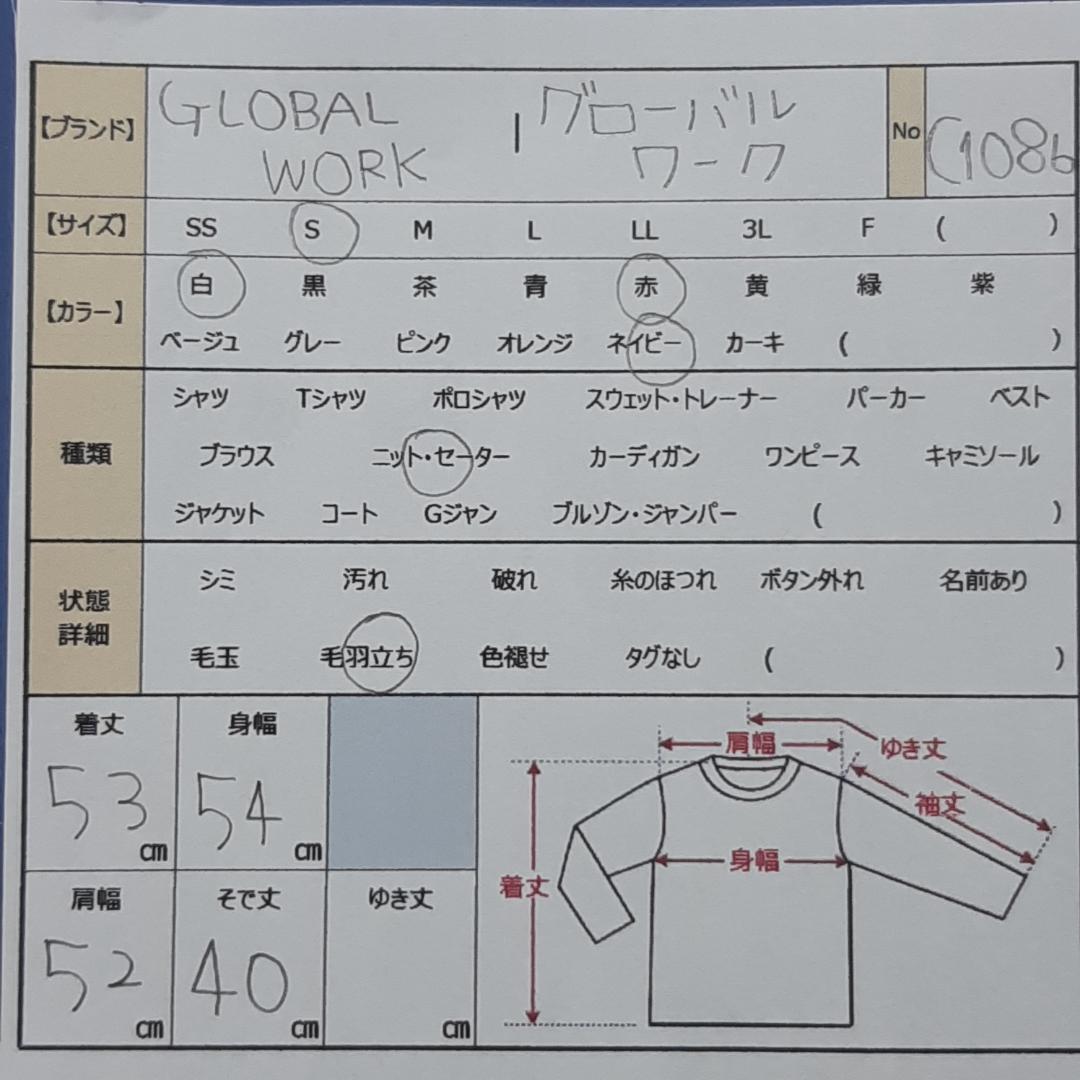 【ブランド】 GLOBAL WORK | グローバル ワーク No (1086
【サイズ】 SS S M L LL 3L F ( )
【カラー】 白 黒 茶 青 赤 黄 緑 紫
ベージュ グレー ピンク オレンジ ネイビー カーキ ( )
種類 シャツ Tシャツ ポロシャツ スウェット・トレーナー パーカー ベスト
ブラウス ニット・セーター カーディガン ワンピース キャミソール
ジャケット コート Gジャン ブルゾン・ジャンパー ( )
状態詳細 シミ 汚れ 破れ 糸のほつれ ボタン外れ 名前あり
毛玉 毛羽立ち 色褪せ タグなし ( )
着丈 身幅
53 cm 54 cm
肩幅 そで丈 ゆき丈
52 cm 40 cm cm
肩幅 ゆき丈
袖丈
身幅
着丈